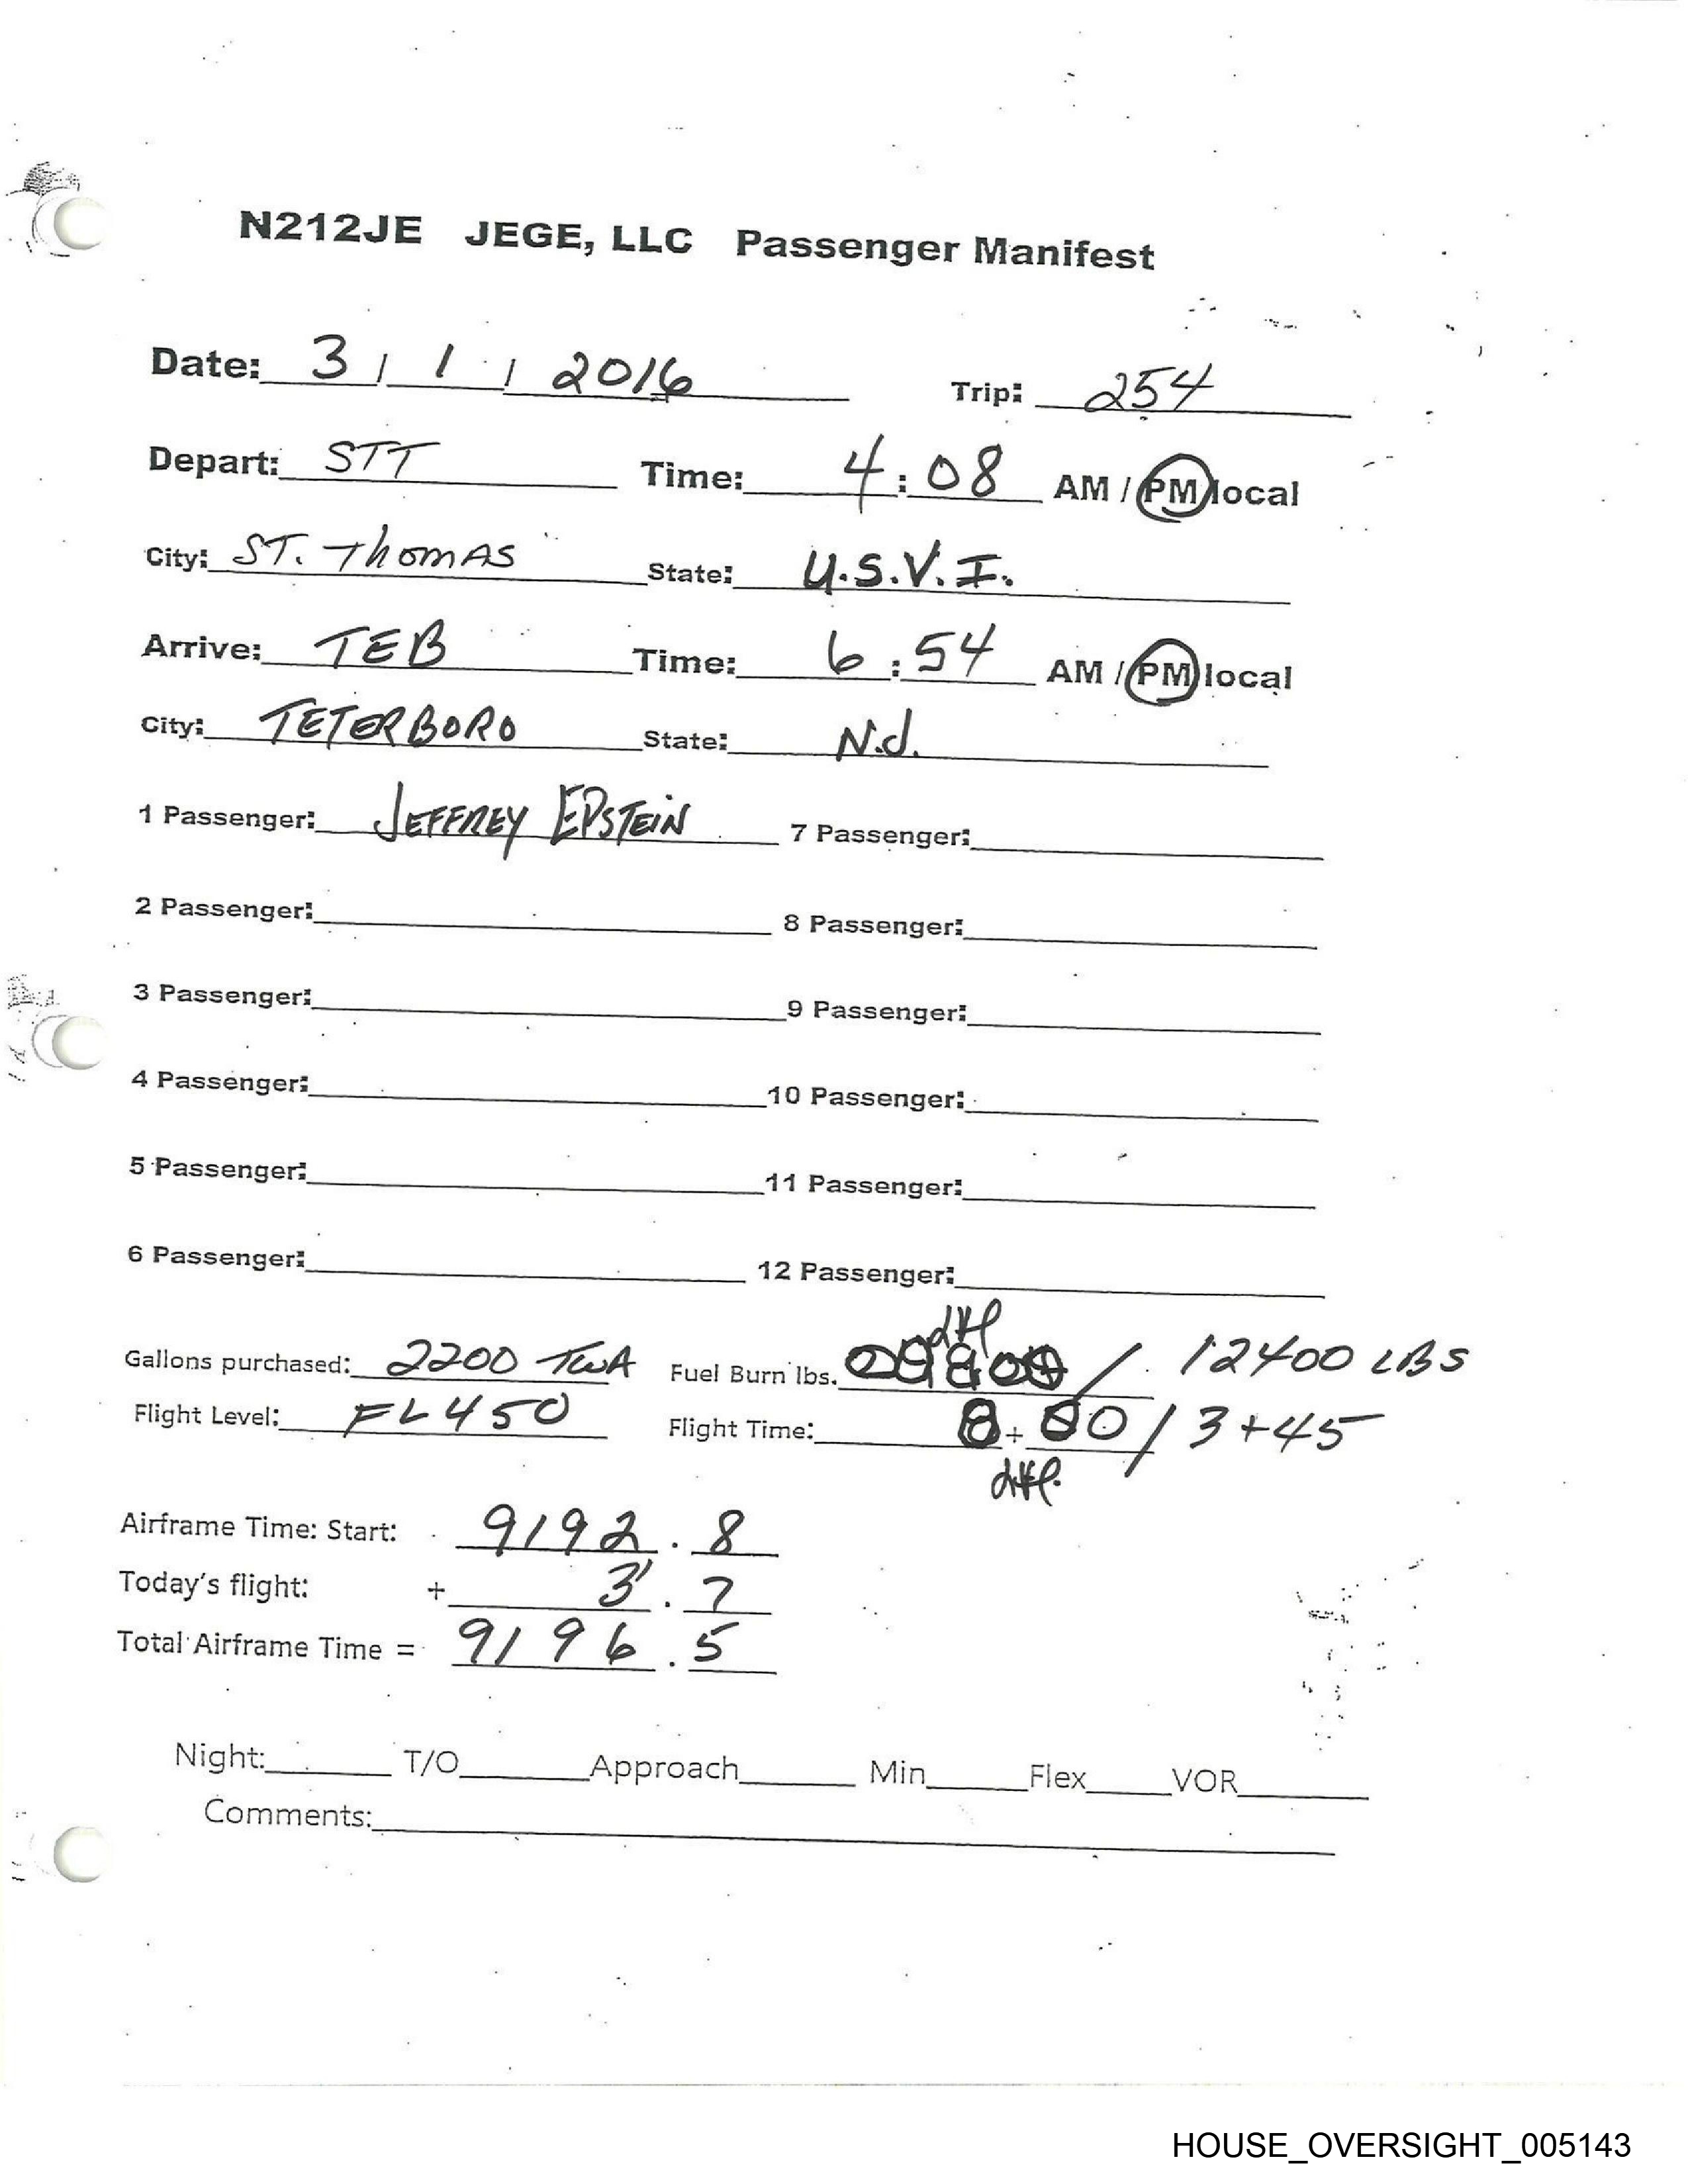 N212JE JEGE, LLC Passenger Manifest
Date: 3 / 1 / 2016 Trip: 254
Depart: STT Time: 4:08 AM / PM local
City: ST. Thomas State: U.S.V.I.
Arrive: TEB Time: 6:54 AM / PM local
City: TETERBORO State: N.J.
1 Passenger: JEFFREY EPSTEIN 7 Passenger:
2 Passenger: 8 Passenger:
3 Passenger: 9 Passenger:
4 Passenger: 10 Passenger:
5 Passenger: 11 Passenger:
6 Passenger: 12 Passenger:
Gallons purchased: 2200 Fuel Burn lbs. / 12400 LBS
Flight Level: FL450 Flight Time: / 3+45
Airframe Time: Start: 9192.8
Today's flight: + 3.7
Total Airframe Time = 9196.5
Night: T/O Approach Min Flex VOR
Comments:
HOUSE_OVERSIGHT_005143